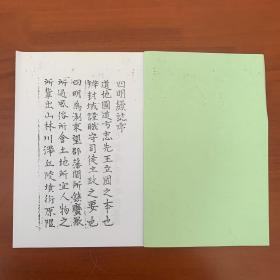 四明綴誌序
道地圖道方志先王立國之本也
辨封域謹職守司徒土政之要也
四明為淛東望郡藩閫所鎮賓蕨
所通風俗所會土地所宜人物之
所萃出山林川澤丘陵墳衍原隰